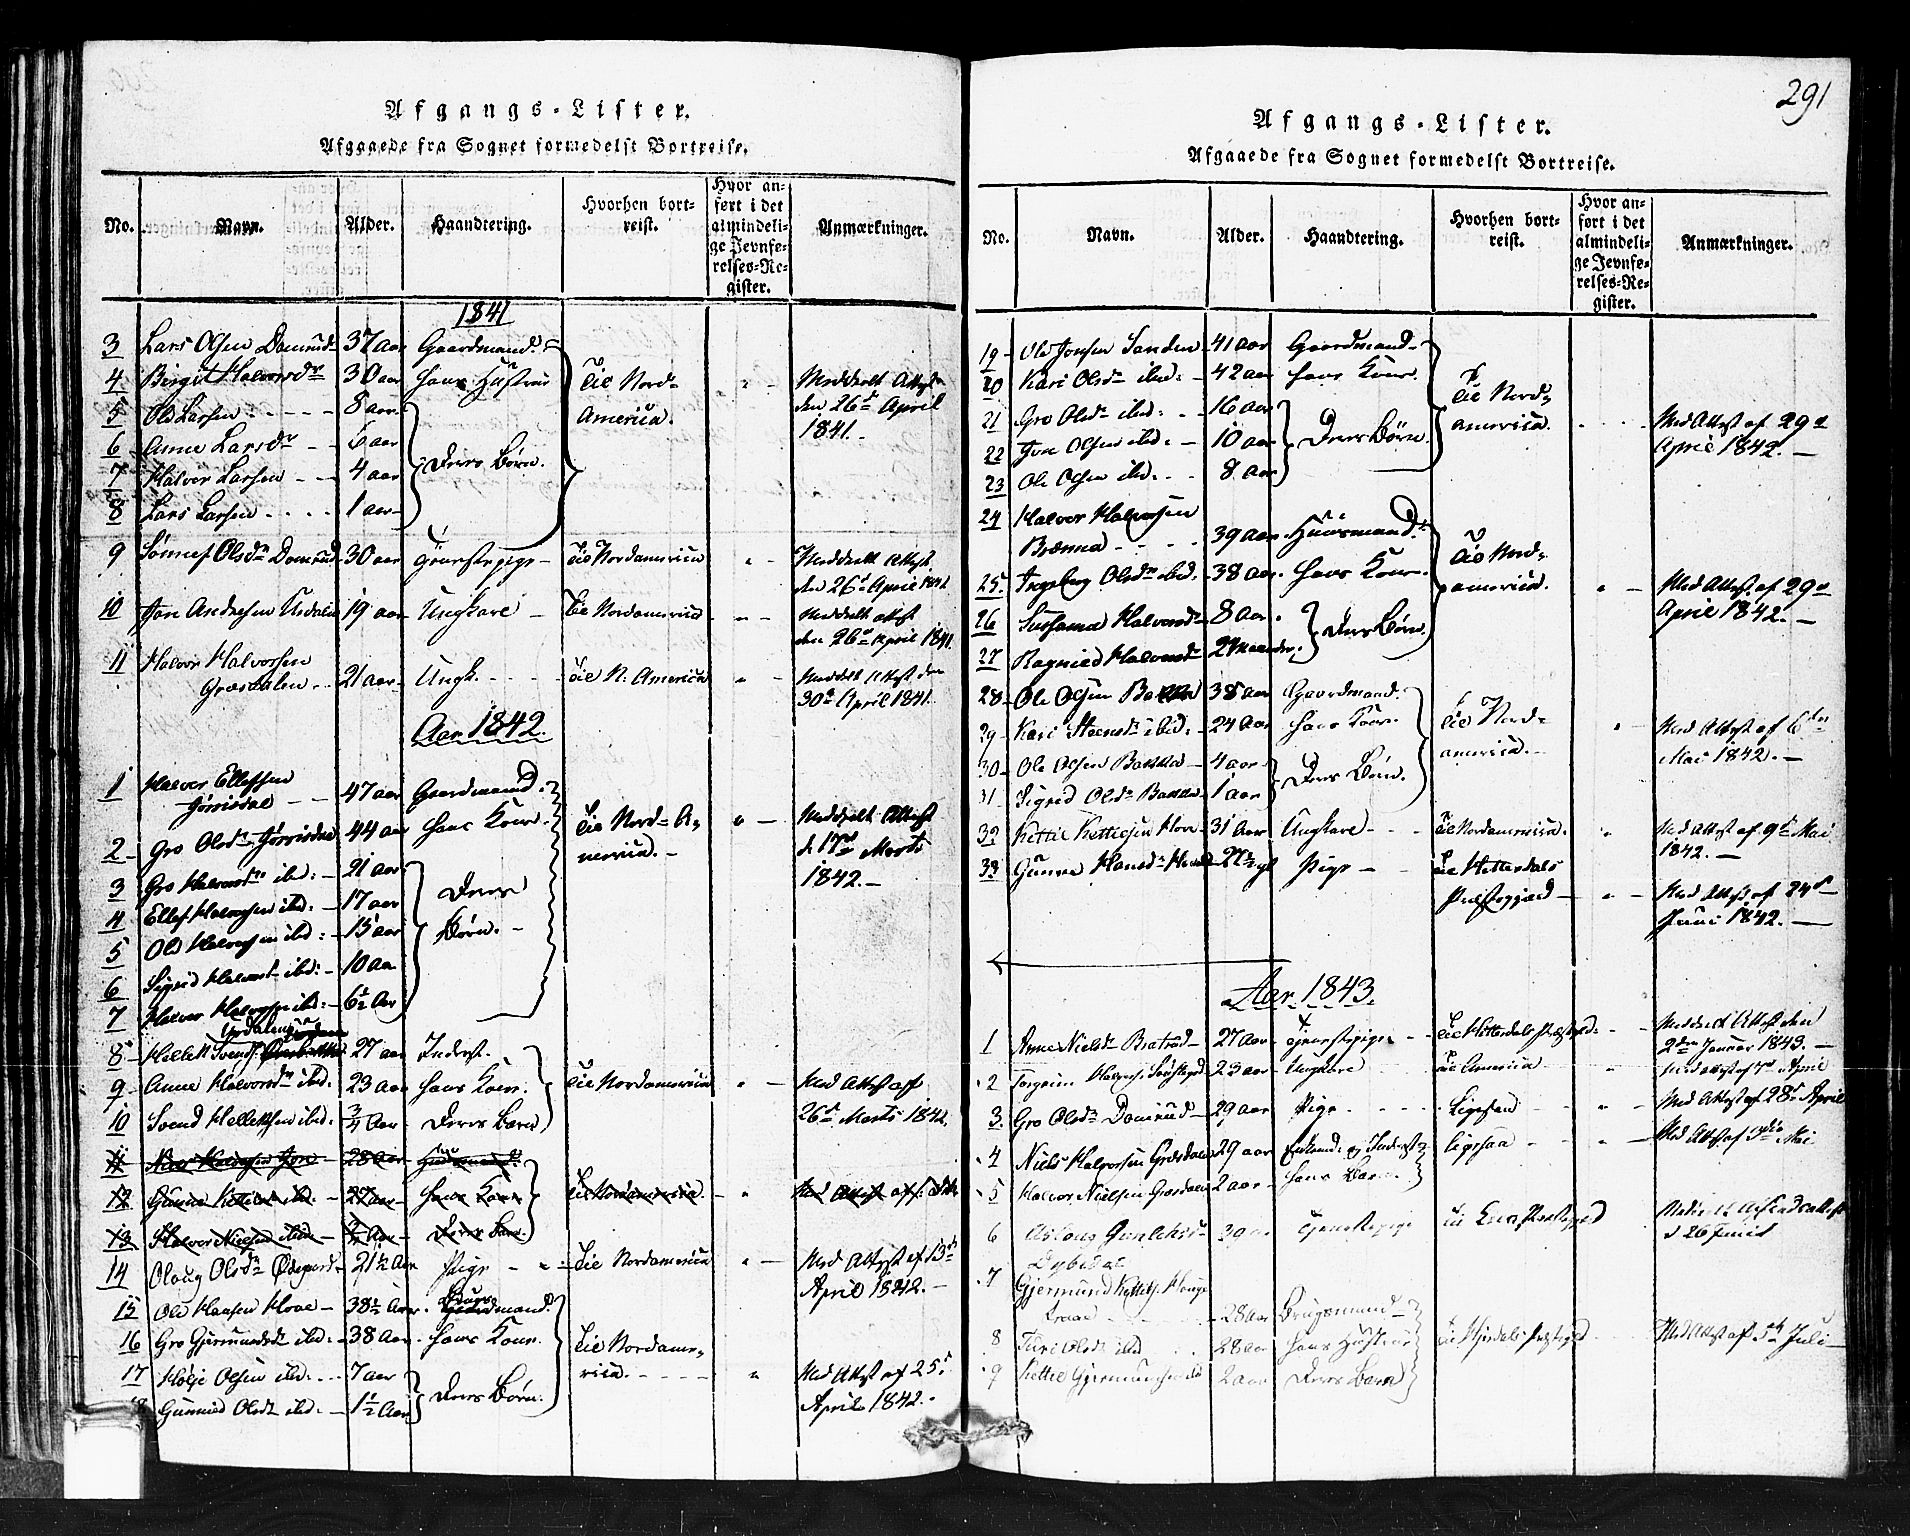 Afgangs-Lister.
Afgaaede fra Sognet formedelst Bortreise.
No. Navn. Alder. Haandtering. Hvorhen bortreist. Hvor anført i det almindelige Jevnførelses-Register. Anmærkninger.
1841
3 Lars Olsen Domrud 37 aar Gaardmand
4 Birgit Halvorsdr 30 aar hans Hustrue til Nord- Meddeelt Attest
5 Ole Larsen 8 aar America. den 26d April
6 Anne Larsdr 6 aar 1841.
7 Halvor Larsen 4 aar Deres Børn.
8 Lars Larsen 1 aar
9 Sønnef Olsdr Domrud 30 aar Tjenestepige til Nordamerica Meddeelt Attest
den 26d April 1841
10 Jon Andresen 19 aar Ungkarl til Nordamerica Meddeelt Attest
den 26d April 1841.
11 Halvor Halvorsen
Græsdalen 21 aar Ungk. til N. America Meddelt Attest den
30d April 1841.
Aar 1842.
1 Halvor Ellefsen
Jørrisdal 47 aar Gaardmand
2 Gro Olsdr Jørrisdal 44 aar hans Kone til Nord-A- Meddeelt Attest
3 Gro Halvorsdr ibid: 21 aar merica. d. 17de Marts
4 Ellef Halvorsen ibid: 17 aar Deres 1842.
5 Ole Halvorsen ibid: 15 aar Børn.
6 Sigrid Halvorsdr ibid: 10 aar
7 Halvor Halvorsen ibid: 6½ Aar
8 Kellek Svends. 27 aar Inderst.
9 Anne Halvorsdr ibid. 23 aar hans Kone. til Nordamerica Med Attest af
10 Svend Kelleksen ibid. ¾ Aar Deres Barn 26d Marts 1842.
11 Niels Halvorsen 28 aar Huusmand.
12 Gunne Kittilsdr ibid. 27 aar hans Kone til Nordamerica. Med Attest af
13 Halvor Nielsen ibid: Aar Deres Barn.
14 Olaug Olsdr Ødegaard 21½ Aar Pige til Nordamerica Med Attest af 13de
April 1842.
15 Ole Hansen Hovæ 38½ Aar Brugsmand
16 Gro Gjermundsdr ibid: 38 Aar hans Kone. til Nordame-
17 Hølje Olsen ibid. 7 aar rica. Med Attest af 25d
18 Gunnild Olsdr ibid: 1½ Aar Deres Børn. April 1842.
291
Afgangs-Lister.
Afgaaede fra Sognet formedelst Bortreise.
No. Navn. Alder. Haandtering. Hvorhen bortreist. Hvor anført i det almindelige Jevnførelses-Register. Anmærkninger.
19 Ole Jonsen Sanden 41 aar Gaardmand
20 Kari Olsdr ibid: 42 aar hans Kone. til Nord-
21 Gro Olsdr ibid: 16 aar america. Med Attest af 29d
22 Jon Olsen ibid: 10 aar Deres Børn. April 1842.
23 Ole Olsen ibid: 8 aar
24 Halvor Halvorsen
Brænna 39 aar Huusmand. til Nord-
25 Ingeborg Olsdr ibid: 38 aar. hans Kone. america. Med Attest af 29d
26 Susanna Halvorsdr 8 aar. April 1842.
27 Ragnild Halvorsdr Maaneder. Deres Børn.
28 Ole Olsen Bakka 38 aar Gaardmand.
29 Kari Steensdr ibid: 24 aar hans Kone. til Nord- Med Attest af 6te
30 Ole Olsen Bakka 4 aar america. Mai 1842.
31 Sigrid Olsdr Bakka 1 aar Deres Børn.
32 Kittil Kittilsen Hovæ 31 Aar Ungkarl til Nordamerica. Med Attest af 9d Mai
1842.
33 Gunne Hansdr 22½ Pige til Hitterdals
Præstegjæld Med Attest af 24d
Juni 1842.
Aar 1843.
1 Anne Nielsdr Bratrud 27 aar Tjenestepige til Hitterdals Præstegjæld: Meddeelt Attest den
2den Januar 1843.
2 Torgrim Halvors. 23 aar Ungkarl til America Med Attest af 7d April
3 Gro Olsdr Domrud 29 aar Pige Ligesaa Med Attest af 28d April
4 Niels Halvorsen Græsdalen 29 aar Enkem: og Inderst ligesaa Med Attest af 3die Mai
5 Halvor Nielsen Græsdalen 2 aar hans Barn
6 Asloug Gunleiksdr 39 aar Tjenestepige til Præstegjeld Meddeelt Attest
Dybedal d 26 Junii
7 Gjermund Kittils. Hauge
28 aar Brugsmand
8 Turi Olsdr ibid 28 aar hans Hustrue til Hjerdals Præstegjeld Med Attest af 5te Juli
9 Kittil Gjermundsen ibid 2 aar Deres Barn